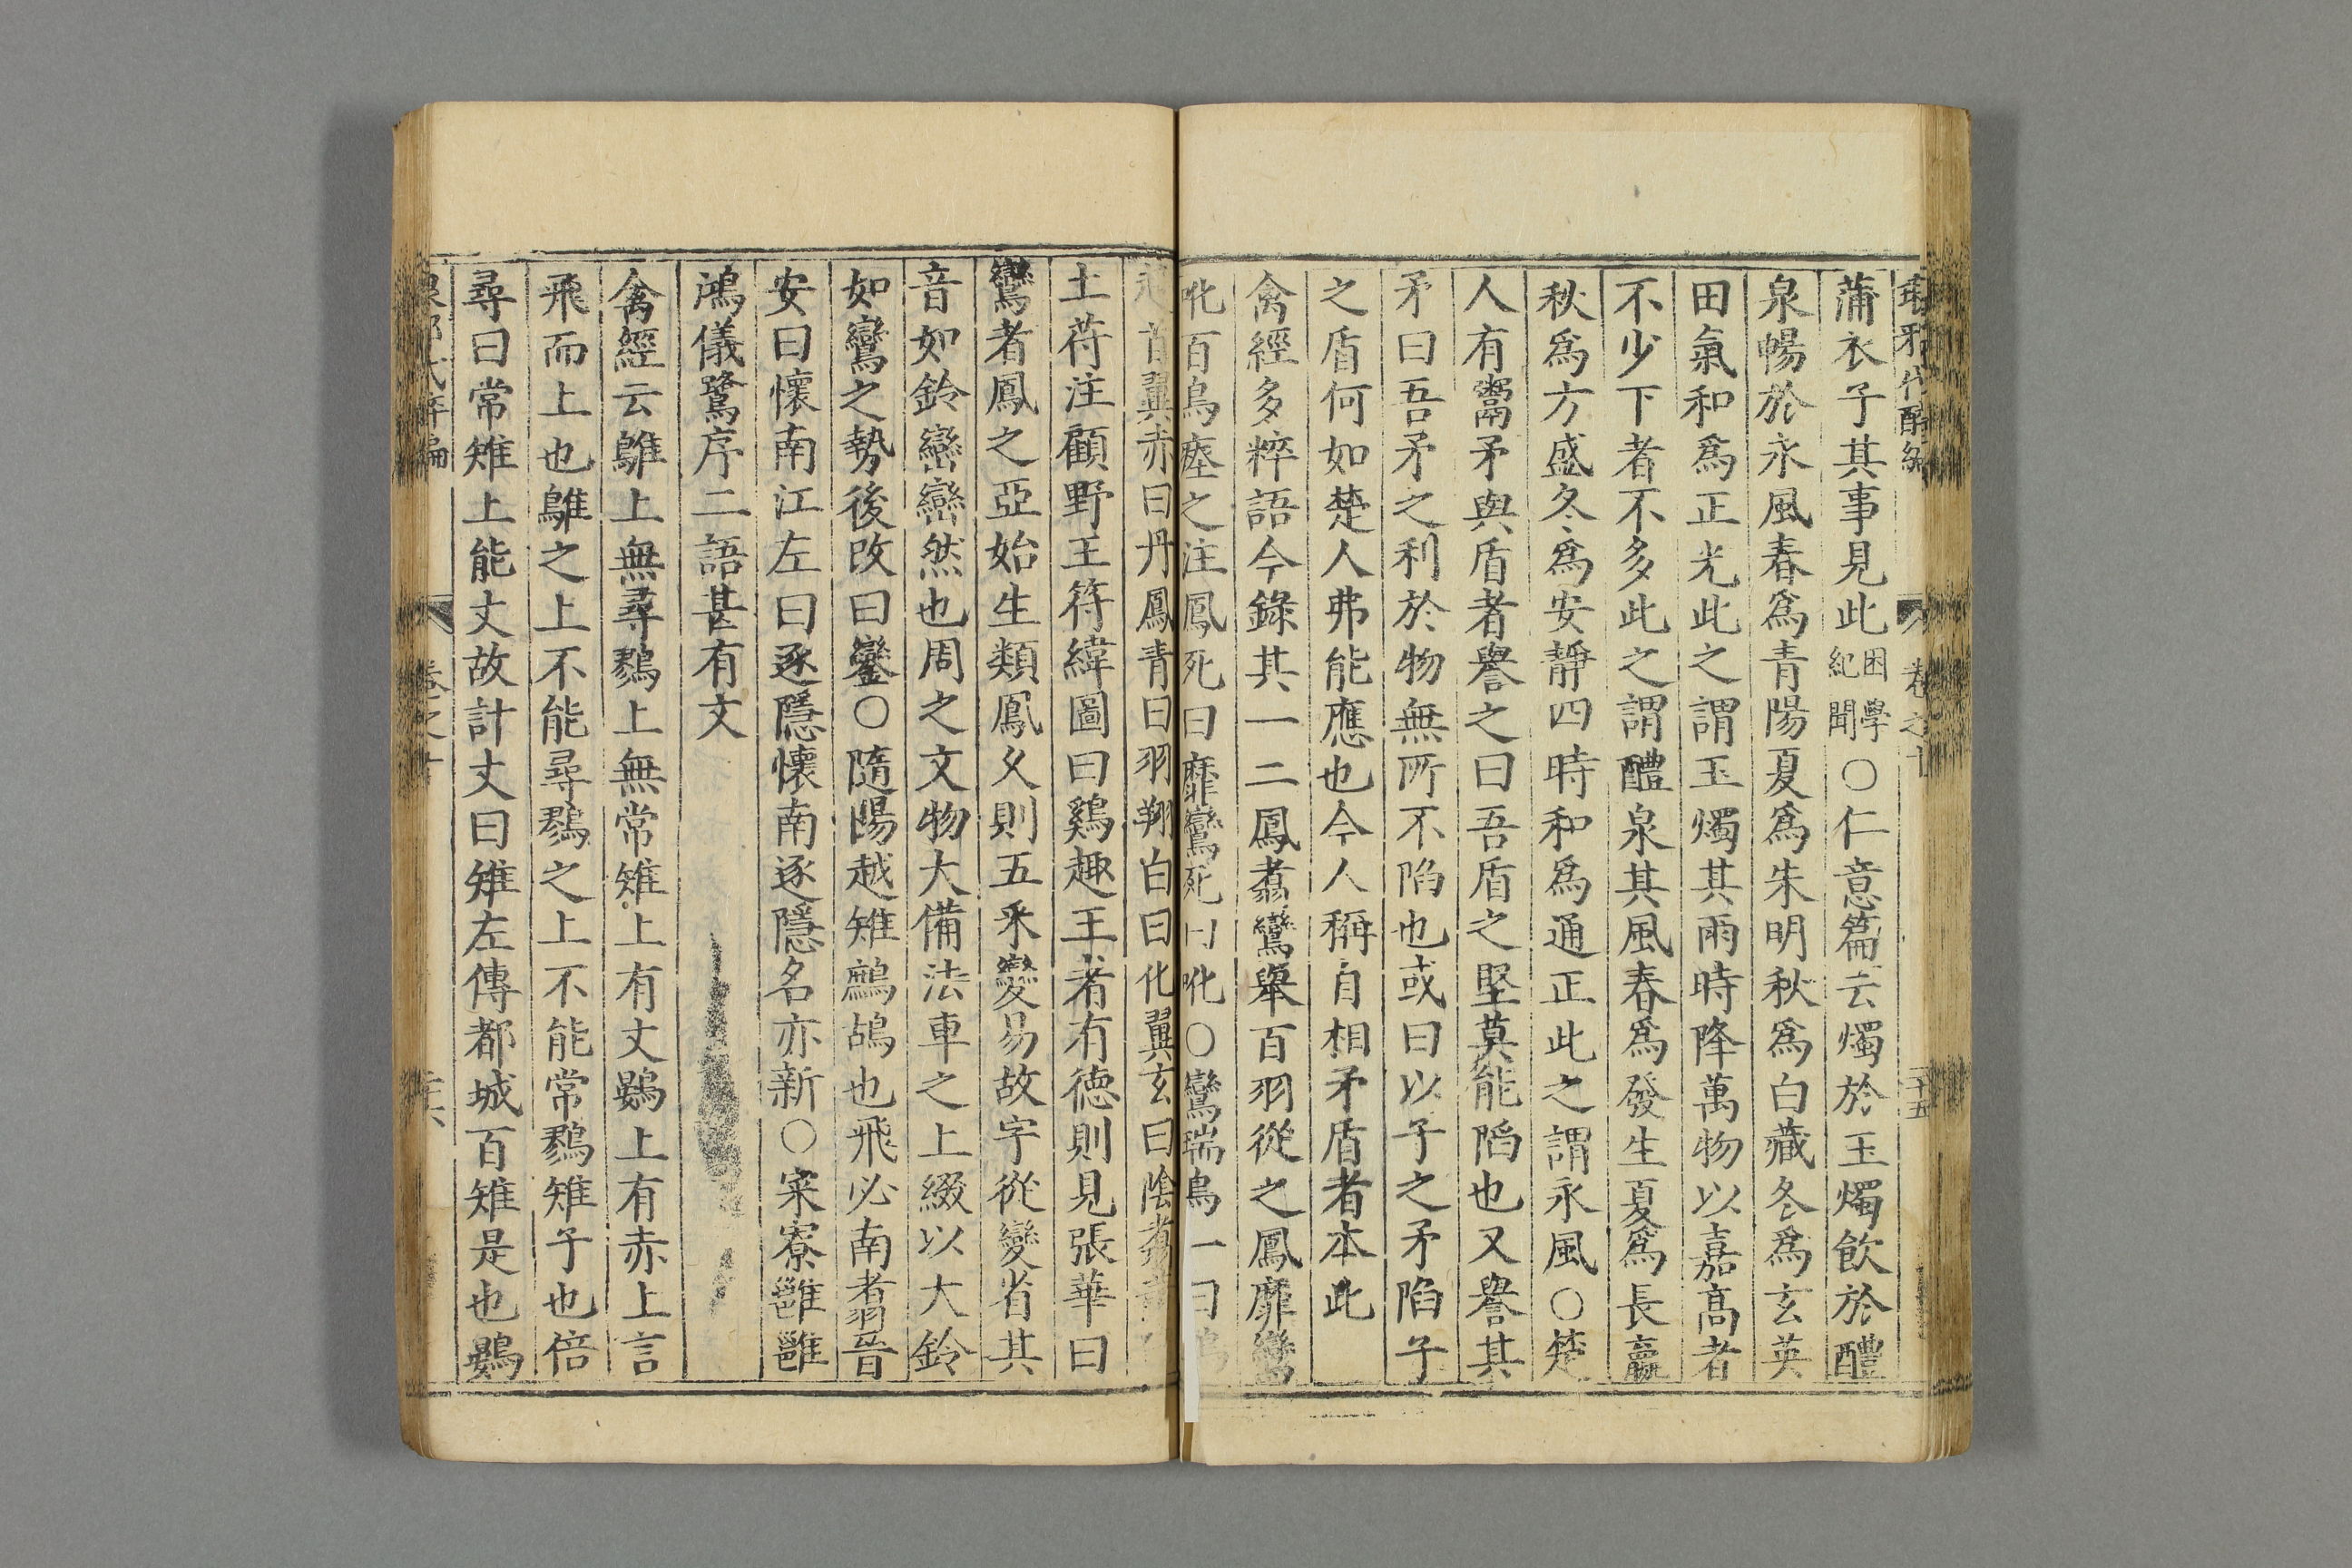 蒲衣子其事見此困學紀聞○仁意篇云燭於玉燭飲於醴
泉暢於永風春爲青陽夏爲朱明秋爲白藏冬爲玄英
田氣和爲正光此之謂玉燭其雨時降萬物以嘉高者
不少下者不多此之謂醴泉其風春爲發生夏爲長嬴
秋爲方盛冬爲安靜四時和爲通正此之謂永風○楚
人有鬻矛與盾者譽之曰吾盾之堅莫能陷也又譽其
矛曰吾矛之利於物無所不陷也或曰以子之矛陷子
之盾何如楚人弗能應也今人稱自相矛盾者本此
禽經多粹語今錄其一二鳳翥鸞舉百羽從之鳳靡鸞
吪百鳥瘞之注鳳死曰靡鸞死曰吪○鸞瑞鳥一曰
首翼赤曰丹鳳青曰羽翔白曰化翼玄曰陰翥
土符注顧野王符緯圖曰鷄趣王者有德則見張華曰
鸞者鳳之亞始生類鳳久則五釆變易故字從變省其
音如鈴巒巒然也周之文物大備法車之上綴以大鈴
如鸞之勢後改曰鑾○隨陽越雉鷓鴣也飛必南翥晉
安曰懷南江左曰逐隱懷南逐隱名亦新○寀寮雝雝
鴻儀鷺序二語甚有文
禽經云鵻上無尋鷚上無常雉上有丈鷃上有赤上言
飛而上也鵻之上不能尋鷚之上不能常鷚雉子也倍
尋曰常雉上能丈故計丈曰雉左傳都城百雉是也鷃
卷之十